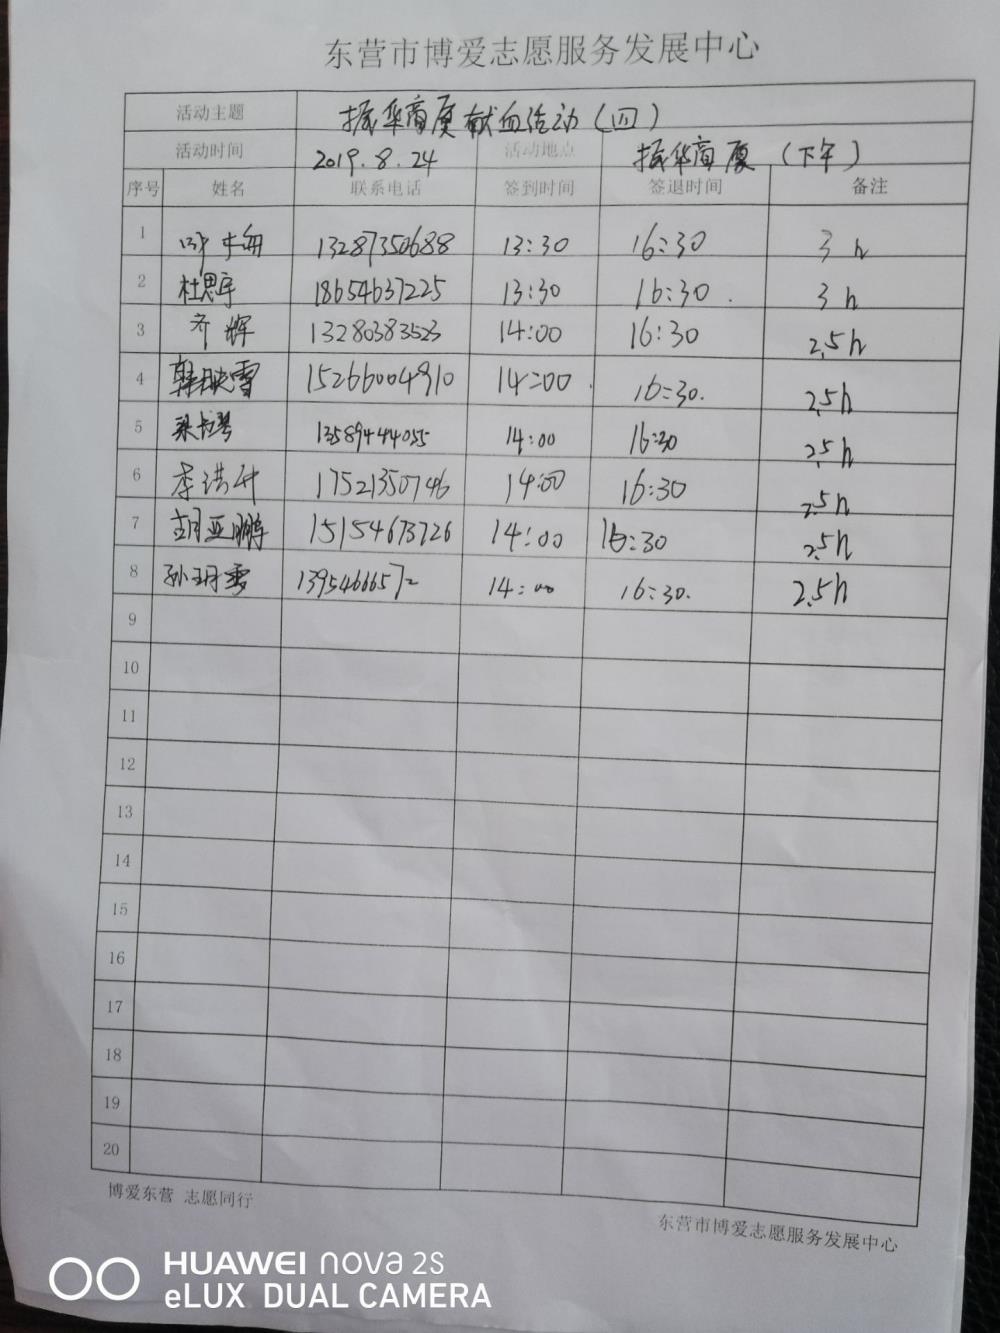 东营市博爱志愿服务发展中心
活动主题 振华商厦献血活动(四)
活动时间 2019.8.24 活动地点 振华商厦(下午)
序号 姓名 联系电话 签到时间 签退时间 备注
1 13287350688 13:30 16:30 3h
2 杜思宇 18654637225 13:30 16:30. 3h
3 齐辉 13280383523 14:00 16:30 2.5h
4 韩映雪 15266004910 14:00. 16:30. 2.5h
5 13589444055 14:00 16:30 2.5h
6 李洪升 17521350746 14:00 16:30 2.5h
7 胡亚鹏 15154673726 14:00 16:30 2.5h
8 孙玥雯 14:00 16:30. 2.5h
9
10
11
12
13
14
15
16
17
18
19
20
博爱东营 志愿同行
东营市博爱志愿服务发展中心
HUAWEI nova 2S
eLUX DUAL CAMERA